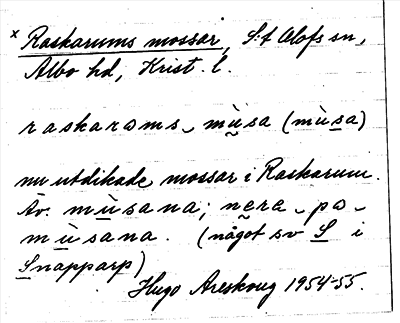 x Raskarums mossar, S:t Olofs sn,
Albo hd, Krist. l.
raskaroms ̮ mùsa (mùsa)
nu utdikade mossar i Raskarum.
Äv. mùsana; nera ̮ pa ̮
mùsana. (något sv S i
Snapparp)
Hugo Areskoug 1954-55.